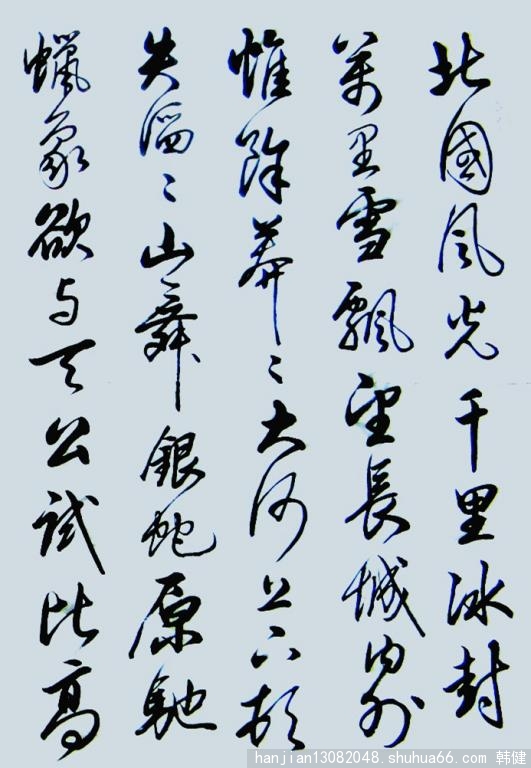 北國风光千里冰封
萬里雪飄望長城内外
惟餘莽々大河上下頓
失滔々山舞銀蛇原馳
蠟象欲与天公試比高
hanjian13082048. shuhua66.com 韩健